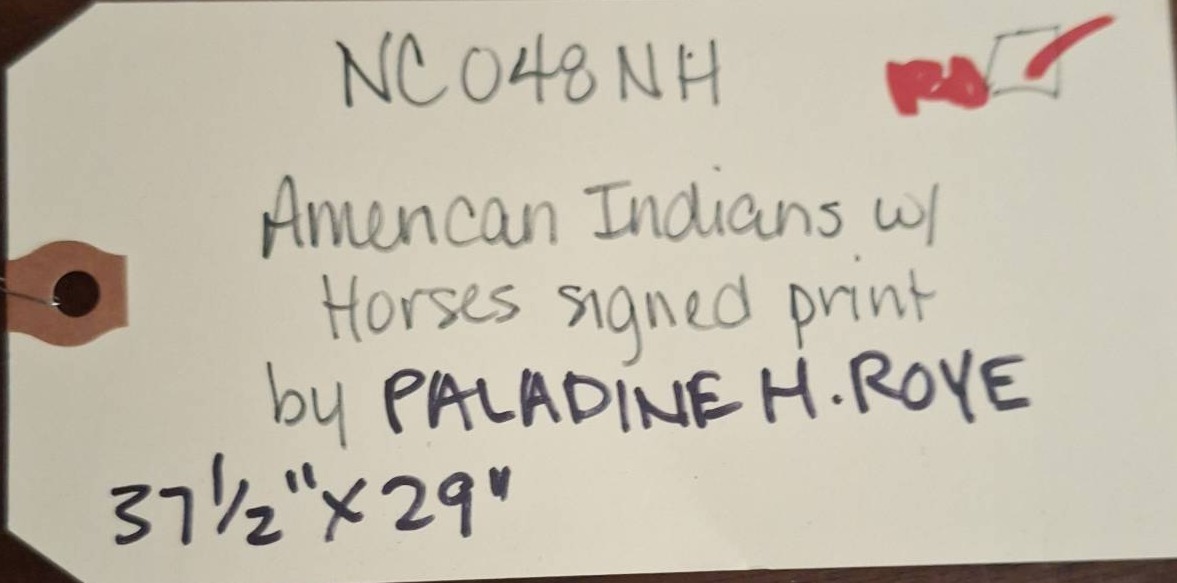 NC048NH
American Indians w/
Horses signed print
by PALADINE H. ROYE
37 1/2" x 29"